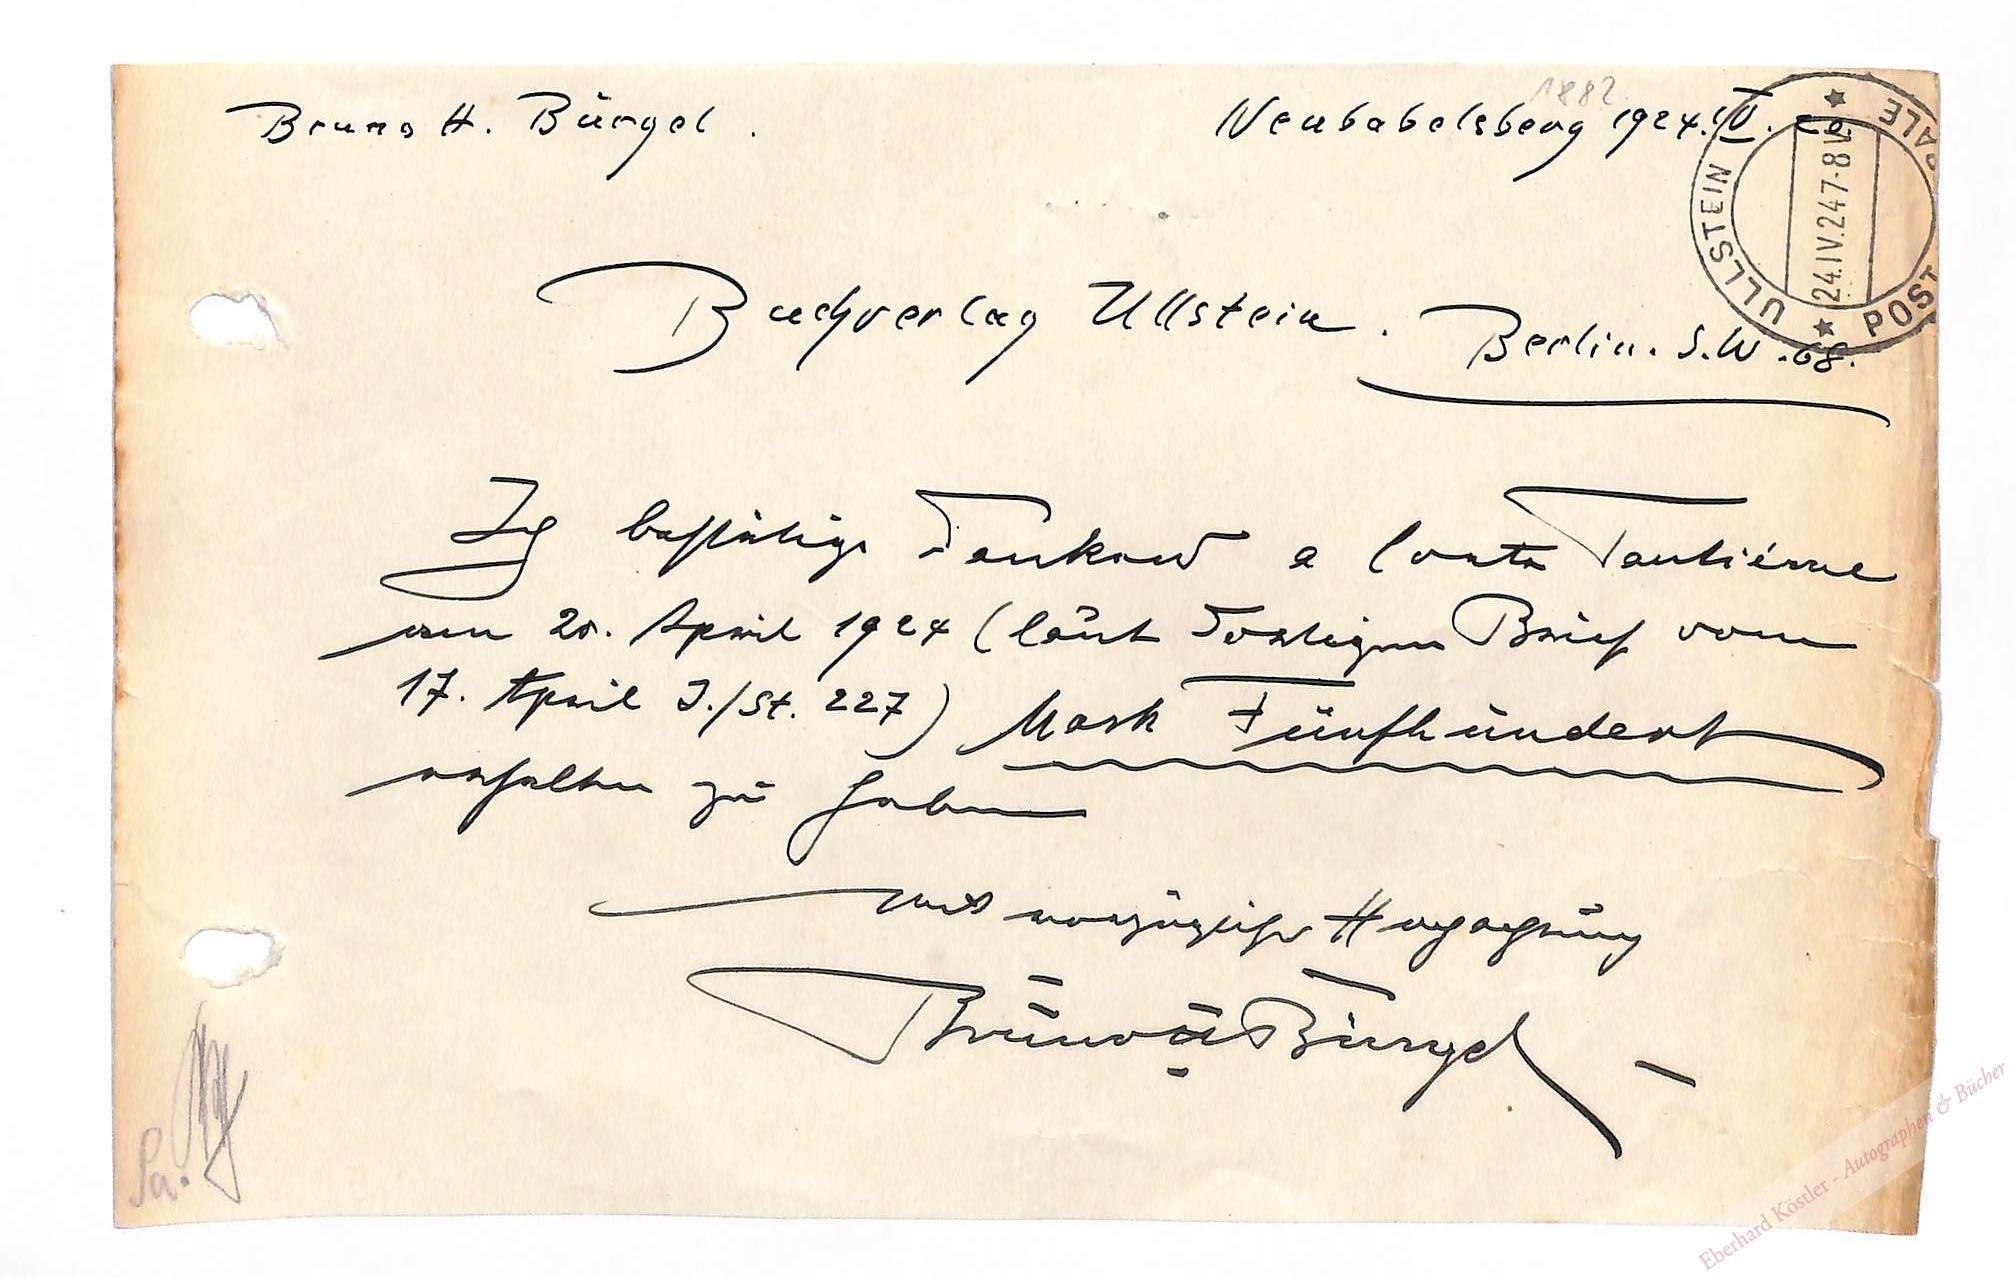 Bruno H. Bürgel.
Neubabelsberg 1924. IV.
1882
ULLSTEIN POST
24.IV.24 7-8 V
Buchverlag Ullstein.
Berlin. S.W.68.
Ich bestätige dankend a Conto Tantiéme
am 20. April 1924 (laut dortigem Brief vom
17. April J./St. 227) Mark Fünfhundert
erhalten zu haben
mit vorzüglicher Hochachtung
Bruno H. Bürgel
Pa.
Eberhard Köstler - Autographen & Bücher